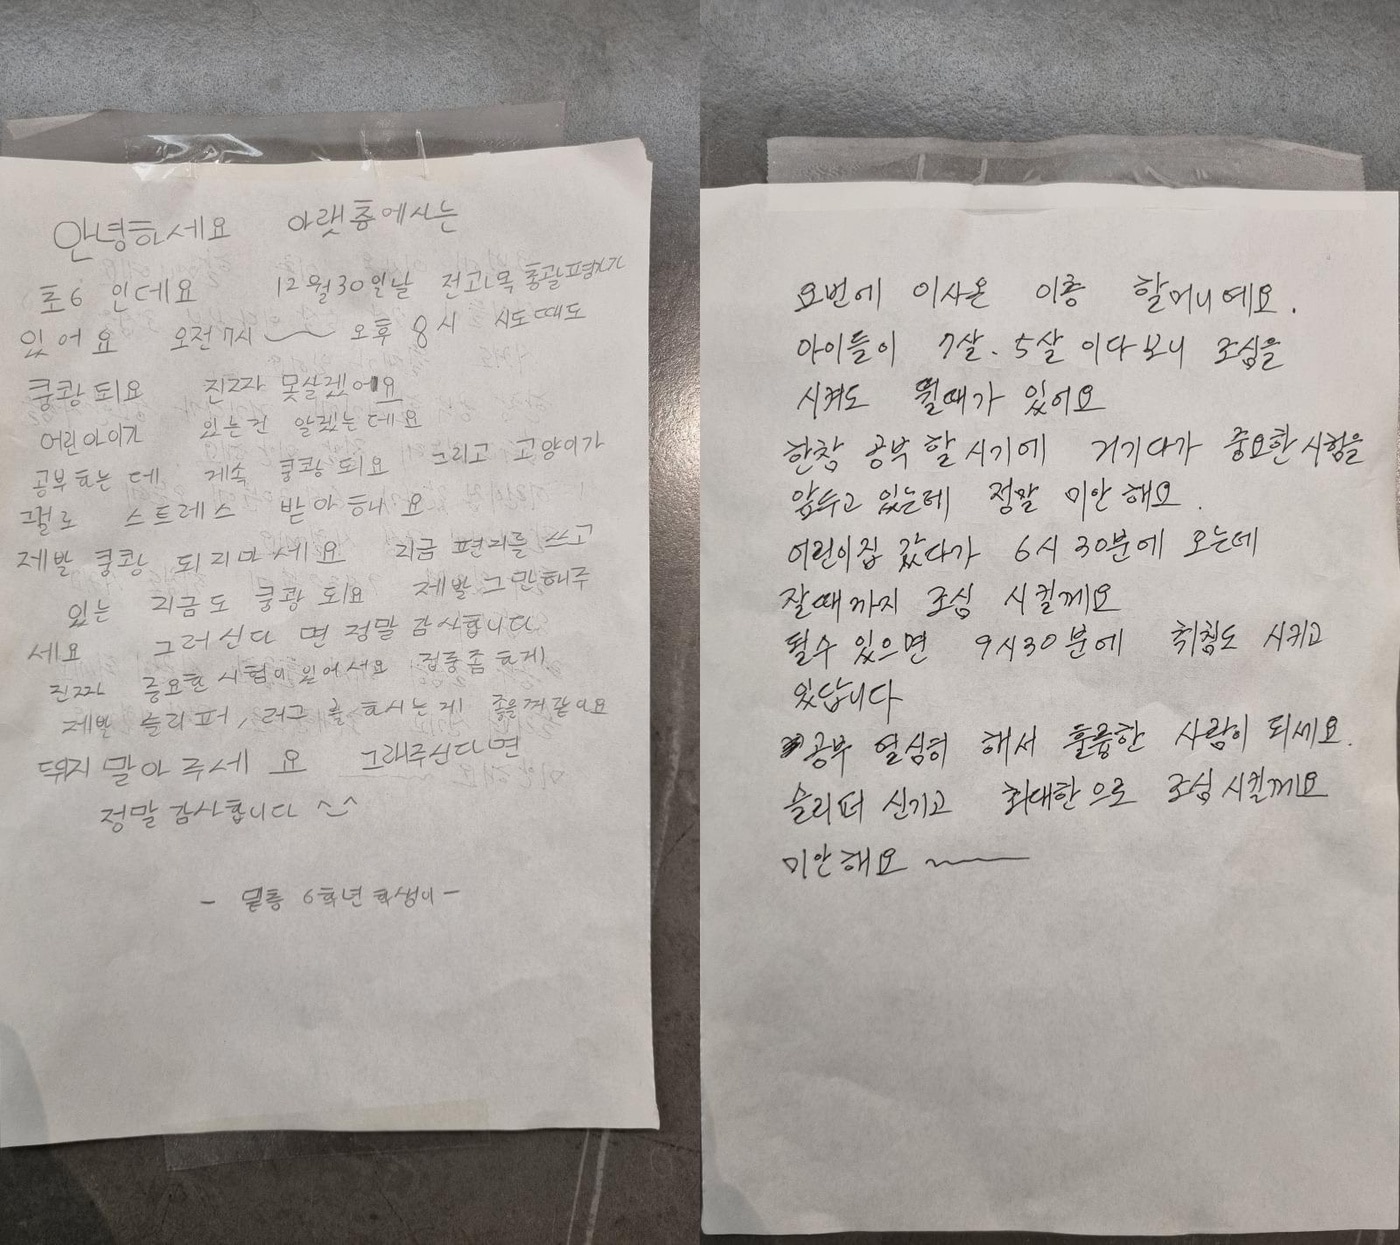 안녕하세요 아랫층에사는
초6 인데요 12월30일날 전과목 총괄평가가
있어요 오전7시 ~ 오후 8시 시도때도
쿵쾅 되요 진짜 못살겠어요
어린아이가 있는건 알겠는데요
공부하는 데 계속 쿵쾅 되요 그리고 고양이가
그걸로 스트레스 받아 해요
제발 쿵쾅 되지마세요 지금 편지를 쓰고
있는 지금도 쿵쾅 되요 제발 그만해주
세요 그러신다 면 정말 감사합니다
진짜 중요한 시험이 있어서요 집중좀 하게
제발 슬리퍼, 러그 를 하시는게 좋을꺼 같아요
뛰지 말아 주세 요 그래주신다면
정말 감사합니다 ^_^
- 밑층 6학년 학생이 -
요번에 이사온 이층 할머니예요.
아이들이 7살. 5살 이다보니 조심을
시켜도 뛸때가 있어요
한참 공부 할 시기에 거기다가 중요한 시험을
앞두고 있는데 정말 미안 해요.
어린이집 갔다가 6시 30분에 오는데
잘때까지 조심 시킬께요
될수 있으면 9시30분에 취침도 시키고
있답니다
공부 열심히 해서 훌륭한 사람이 되세요.
슬리퍼 신기고 최대한으로 조심 시킬께요
미안해요 ~